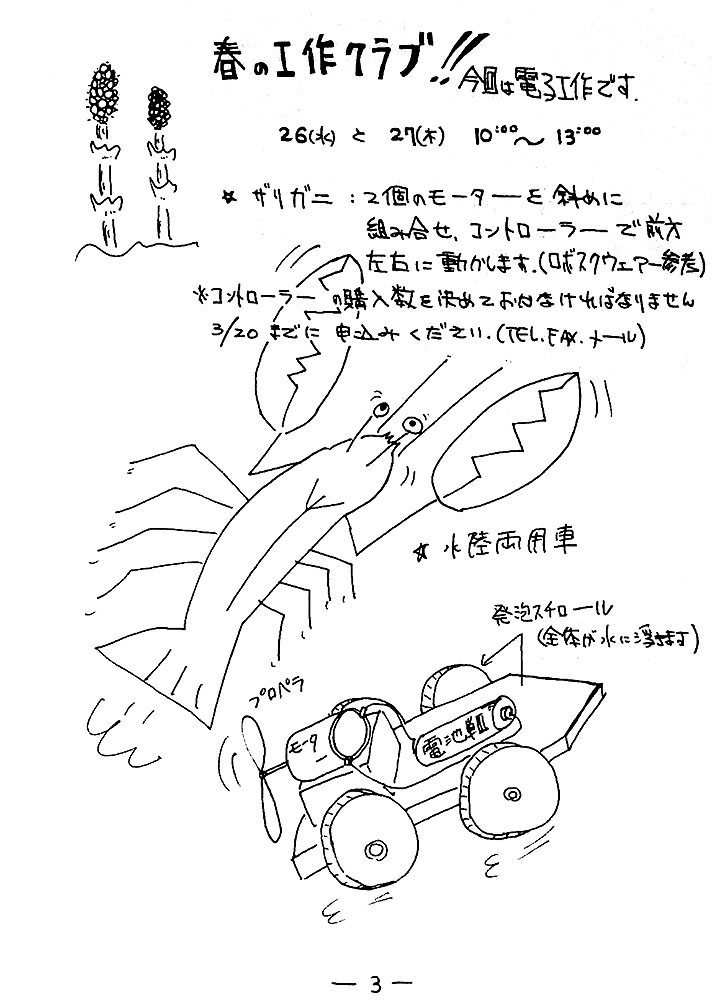 春の工作クラブ!!
今回は電子工作です.
26(水) と 27(木) 10:00〜13:00
☆ ザリガニ:2個のモーターを斜めに
組み合せ、コントローラーで前方
左右に動かします.(ロボスクウェアー参考)
※コントローラーの購入数を決めておかなければなりません
3/20までに申込みください.(TEL.FAX.メール)
☆ 水陸両用車
発泡スチロール
(全体が水に浮きます)
プロペラ
モータ
電池単Ⅱ
— 3 —